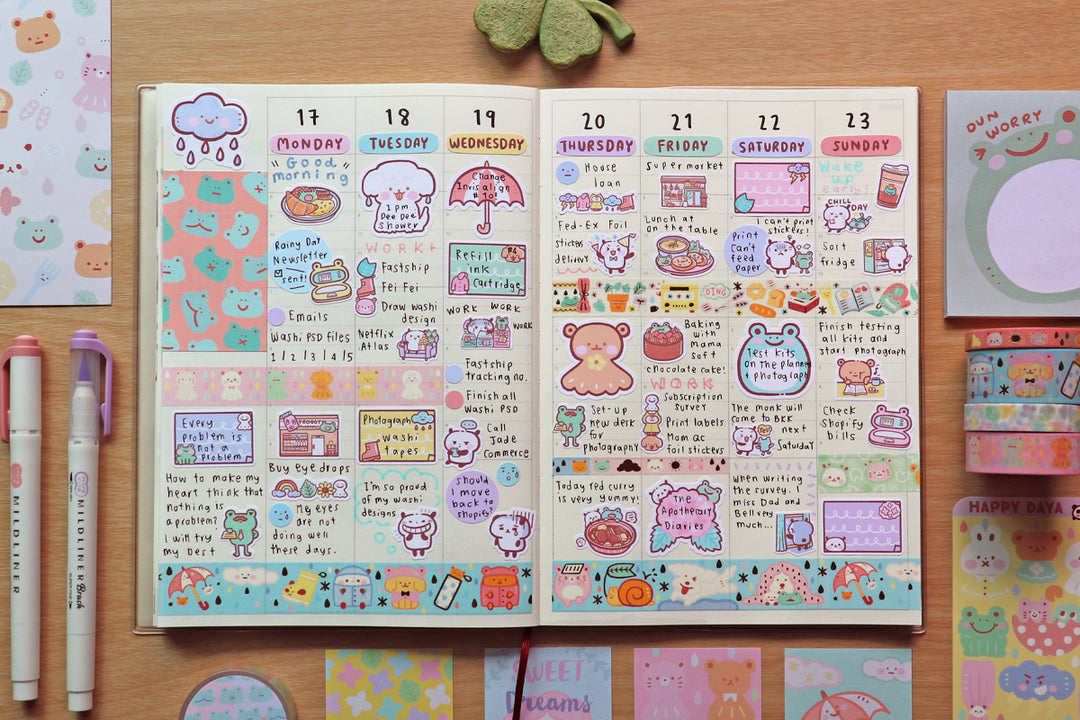 17
MONDAY
18
TUESDAY
19
WEDNESDAY
20
THURSDAY
21
FRIDAY
22
SATURDAY
23
SUNDAY
Every
problem is
not a
problem
How to make my
heart think that
nothing is
a problem?
I will try
my best
"Good
morning"
Rainy Day
Newsletter
sent!
Emails
Washi PSD files
1 2 3 4 5
FROGGY
Buy eye drops
My eyes
are not
doing well
these days.
1 pm
Dee Dee
Shower
WORK+
Fastship
Fei Fei
Draw washi
design
Netflix
Atlas
Photograph
washi
tapes
I'm so proud
of my washi
designs
Change
Invisalign
#10!
A4
Refill
ink
Cartridge
WORK WORK
WORK
Fastship
tracking no.
Finish all
Washi PSD
Call
Jade
Commerce
should
I move
back to
shopify?
House
loan
Fed-Ex Foil
stickers
delivery
Set-up
new desk
for
photography
Today red curry
is very yummy!
Supermarket
Lunch at
on the table
DING
Baking
with
mama
soft
chocolate cake!
WORK
Subscription
Survey
Print labels
Mom ac
foil stickers
The
Apothecary
Diaries
I can't print
stickers!
Print
Can't
feed
paper
Test kits
on the planner
+ photograph
The monk will
come to BKK
next
Saturday
When writing
the survey. I
miss Dad and
Bell very
much...
Wake
up
early!
CHILL
DAY
Sort
fridge
Finish testing
all kits and
start photograph
Check
Shopify
bills
DUN
WORRY
HAPPY DAYA
MILDLINER
MILDLINER Brush
SWEET
Dreams